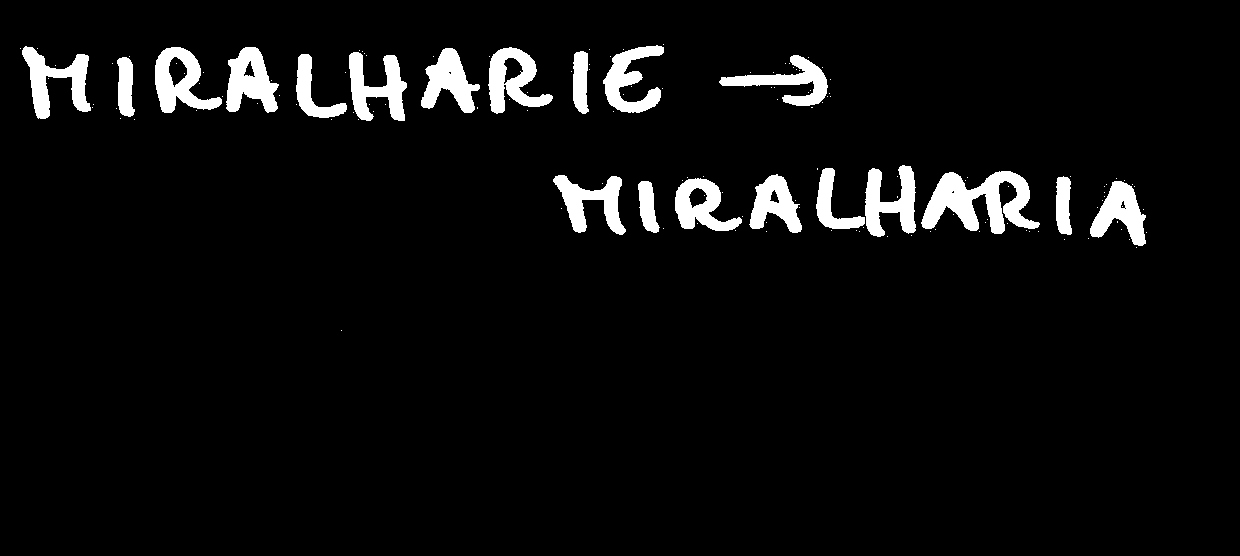 MIRALHARIE →
MIRALHARIA